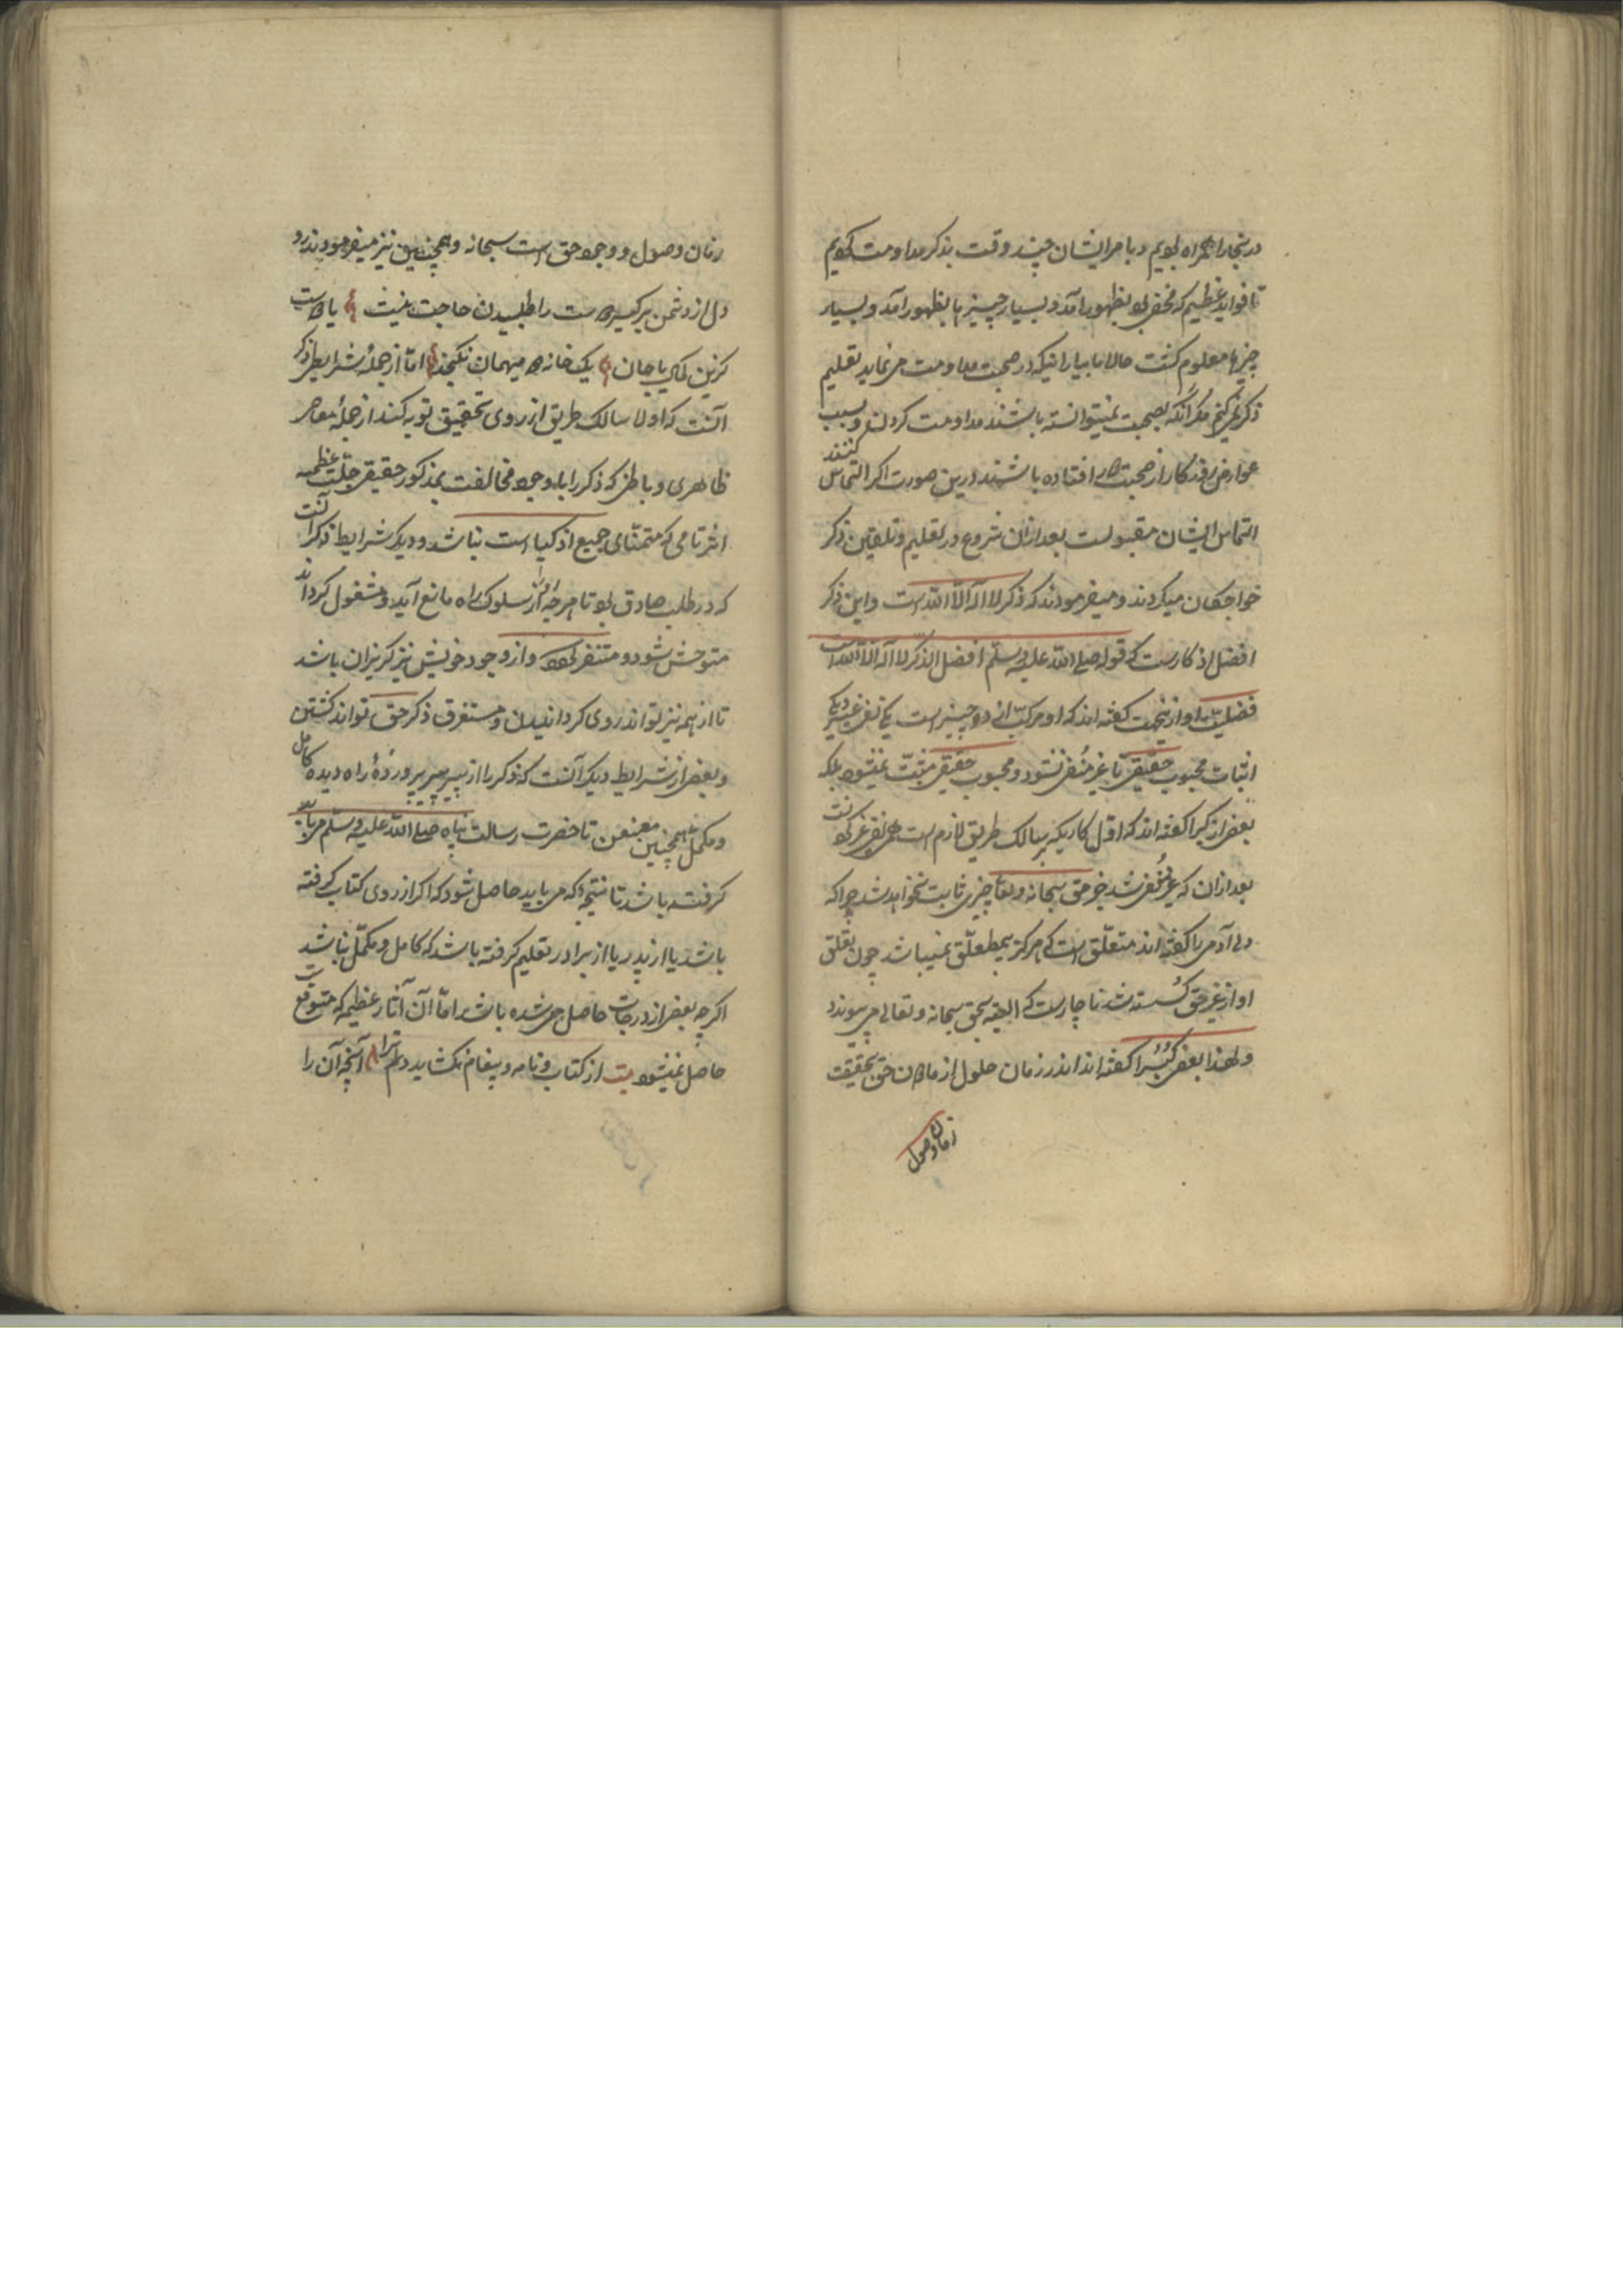 در بخارا همراه بودیم و با مر ایشان چند وقت بذکر مداومت کردیم
تا فواید عظیم که مخفی بود بظهور آمد و بسیار چیزها بظهور آمد و بسیار
چیزها معلوم کشت حالا ما بیارانیکه در صحبت مداومت می نماید تعلیم
ذکر نمی کنم مکر آنکه بصحبت نمیتوانسته باشند مداومت کردن و بسبب
عوارض روزکار از صحبت دور افتاده باشند درین صورت اکر التماس کنند
التماس ایشان مقبولست بعد ازان شروع در تعلیم و تلقین ذکر
خواجکان میکردند و میفرمودند که ذکر لا اله الا الله است و این ذکر
افضل اذکارست که قوله صلی الله علیه وسلم افضل الذکر لا اله الا الله است
فضلیت او ازینجهت کفته اند که او مرکب از دو چیز است یکی نفی غیر دیکر
اثبات محبوب حقیقی تا غیر منفی نشود و محبوب حقیقی مثبت نمیشود بلکه
بعضی از کبرا کفته اند که اول کاریکه بر سالک طریق لازم است همین نفی غیر
بعد ازان که غیر منفی شد جز حق سبحانه و تعالی چیزی ثابت نخواهد شد چرا که
دل آدمی را کفته اند متعلق است که هرکز بی تعلق نمیباشد چون تعلق
او از غیر حق کسسته شد ناچارست که البته بحق سبحانه و تعالی می پیوندد
و لهذا بعضی کبرا کفته اند اندر زمان حلول از مادون حق بحقیقت
زمان وصول
زمان وصول و وجود حق است سبحانه و همچنین نیز میفرمودند رو
دل از دشمن بر کیر دوست را طلبیدن حاجت نیست یا دوست
کزین کمال یا جان یک خانه دو میهمان نکنجد اما از جملهٔ شرایط ذکر
آنست که اولا سالک طریق از روی تحقیق توبه کند از جملهٔ معاصی
ظاهری و باطنی که ذکر را با وجود مخالفت بمذکور حقیقی جلت عظمته
اثر تامی که متمنای جمیع اذکیا است نباشد و دیکر شرایط ذکر آنست
که در طلب صادق بود تا هر چه او را از سلوک راه مانع آید و مشغول کرداند
متوحش شود و متنفر کردد و از وجود خویش نیز کریزان باشد
تا از همه نیز تواند روی کردانیدن و مستغرق ذکر حق تواند کشتن
و بعضی از شرایط دیکر آنست که ذکر را از پیر پیر پروردهٔ راه دیده کامل
و مکمل همچنین معنعن تا حضرت رسالت پناه صلی الله علیه وسلم
کرفته باشد تا نتیجهٔ که می باید حاصل شود که اکر از روی کتاب کرفته
باشد یا از پدر یا از برادر تعلیم کرفته باشد که کامل و مکمل نباشد
اکرچه بعضی از درجات حاصل می شده باشد اما آن آثار عظیمه که متوقع است
حاصل نمیشود بیت از کتاب و نامه و پیغام نکشاید دلم آنچه آن را